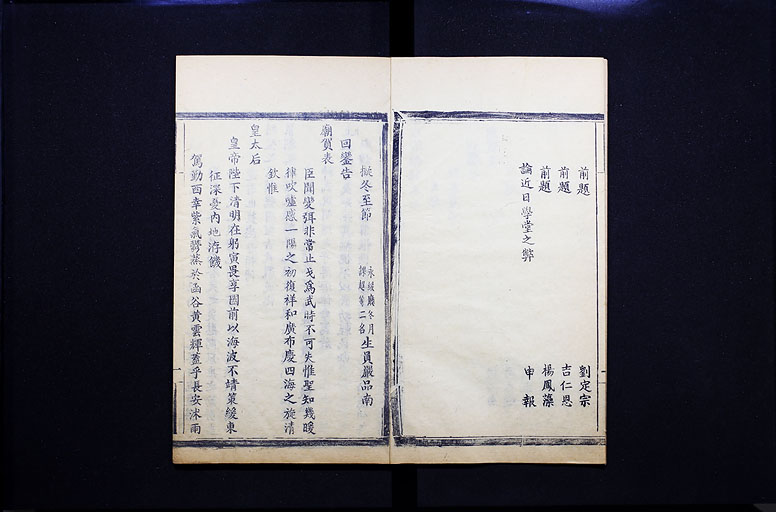 前題 劉定宗
前題 吉仁恩
前題 楊鳳藻
論近日學堂之弊 申報
擬冬至節 永綏廳冬月課超等二名 生員嚴品南
回鑾告
廟賀表
臣聞變弭非常止戈爲武時不可失惟聖知幾暖
律吹爐感一陽之初復祥和廣布慶四海之旋清
欽惟
皇太后
皇帝陛下清明在躬寅畏享國前以海波不靖策緩東
征深憂內地洊饑
駕勤西幸紫氣鬱蒸於函谷黃雲輝蓋乎長安沐雨